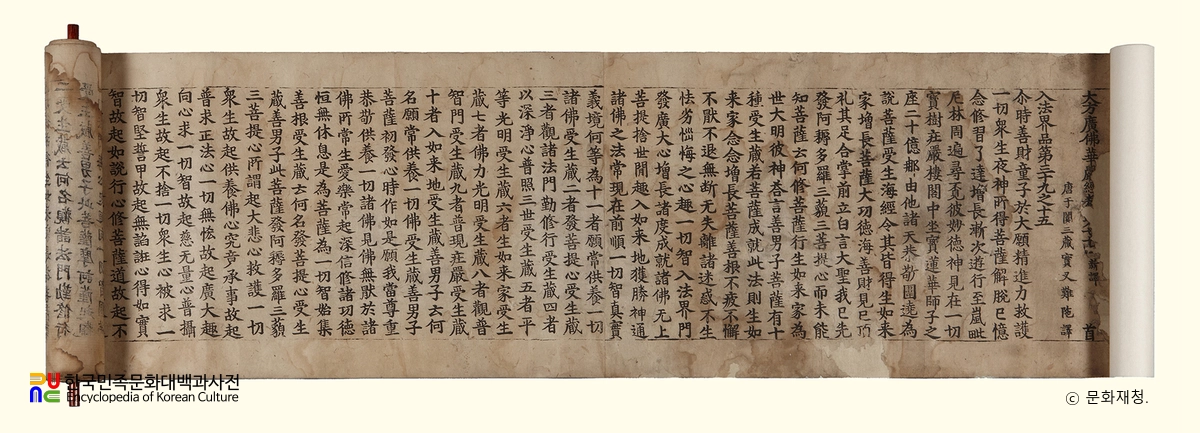 大方廣佛華嚴經卷 新譯 首
唐于闐三藏實叉難陁譯
入法界品第三十九之十五
尒時善財童子於大願精進力救護
一切衆生夜神所得菩薩解脫已憶
念修習了達增長漸次遊行至嵐毗
尼林周遍尋覓彼妙德神見在一切
寶樹莊嚴樓閣中坐寶蓮華師子之
座二十億那由他諸天恭敬圍遶為
說菩薩受生海經令其皆得生如來
家增長菩薩大功德海善財見已頂
礼其足合掌前立白言大聖我已先
發阿耨多羅三藐三菩提心而未能
知菩薩云何修菩薩行生如來家為
世大明彼神荅言善男子菩薩有十
種受生藏若菩薩成就此法則生如
來家念念增長菩薩善根不疲不懈
不猒不退無斷无失離諸迷惑不生
怯劣惱悔之心趣一切智入法界門
發廣大心增長諸度成就諸佛无上
菩提捨世間趣入如來地獲勝神通
諸佛之法常現在前順一切智真實
義境何等為十一者願常供養一切
諸佛受生藏二者發菩提心受生藏
三者觀諸法門勤修行受生藏四者
以深淨心普照三世受生藏五者平
等光明受生藏六者生如來家受生
藏七者佛力光明受生藏八者觀普
智門受生藏九者普現莊嚴受生藏
十者入如來地受生藏善男子云何
名願常供養一切佛受生藏善男子
菩薩初發心時作如是願我當尊重
恭敬供養一切諸佛見佛無猒於諸
佛所常生愛樂常起深信修諸功德
恒無休息是為菩薩為一切智始集
善根受生藏云何名發菩提心受生
藏善男子此菩薩發阿耨多羅三藐
三菩提心所謂起大悲心救護一切
衆生故起供養佛心究竟承事故起
普求正法心一切無恡故起廣大趣
向心求一切智故起慈无量心普攝
衆生故起不捨一切衆生心被求一
切智堅誓甲故起無諂誑心得如實
智故起如說行心修菩薩道故起不
한국민족문화대백과사전
Encyclopedia of Korean Culture
ⓒ 문화재청.